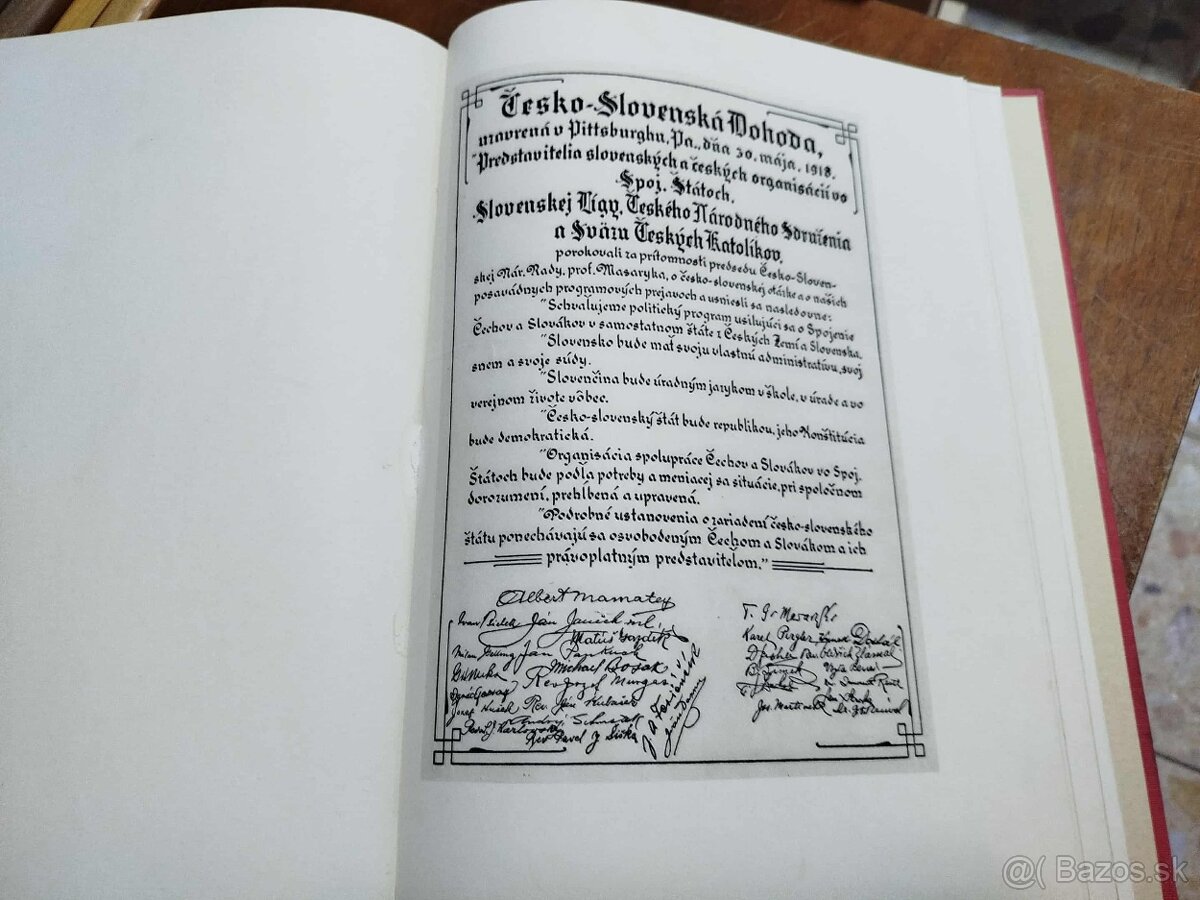 Česko-Slovenská Dohoda,
uzavrená v Pittsburghu, Pa., dňa 30. mája, 1918.
"Predstavitelia slovenských a českých organisácií vo
Spoj. Štátoch,
Slovenskej Lígy, Českého Národného Sdruženia
a Sväzu Českých Katolíkov,
porokovali za prítomnosti predsedu Česko-Sloven-
skej Nár. Rady, prof. Masaryka, o česko-slovenskej otázke a o našich
posavádnych programových prejavoch a usniesli sa nasledovne:
"Schvaľujeme politický program usilujúci sa o Spojenie
Čechov a Slovákov v samostatnom štáte z Českých Zemí a Slovenska.
"Slovensko bude mať svoju vlastnú administratívu, svoj
snem a svoje súdy.
"Slovenčina bude úradným jazykom v škole, v úrade a vo
verejnom živote vôbec.
"Česko-slovenský štát bude republikou, jeho Konštitúcia
bude demokratická.
"Organisácia spolupráce Čechov a Slovákov vo Spoj.
Štátoch bude podľa potreby a meniacej sa situácie, pri spoločnom
dorozumení, prehĺbená a upravená.
"Podrobné ustanovenia o zariadení česko-slovenského
štátu ponechávajú sa osvobodeným Čechom a Slovákom a ich
právoplatným predstaviteľom."
Albert Mamatey
Ján Janček ml.
Michael Bosak
Rev. Jozef Murgaš
Rev. Ján Kubašek
Rev Pavel J. Šiška
Karel Pergler
@( Bazos.sk